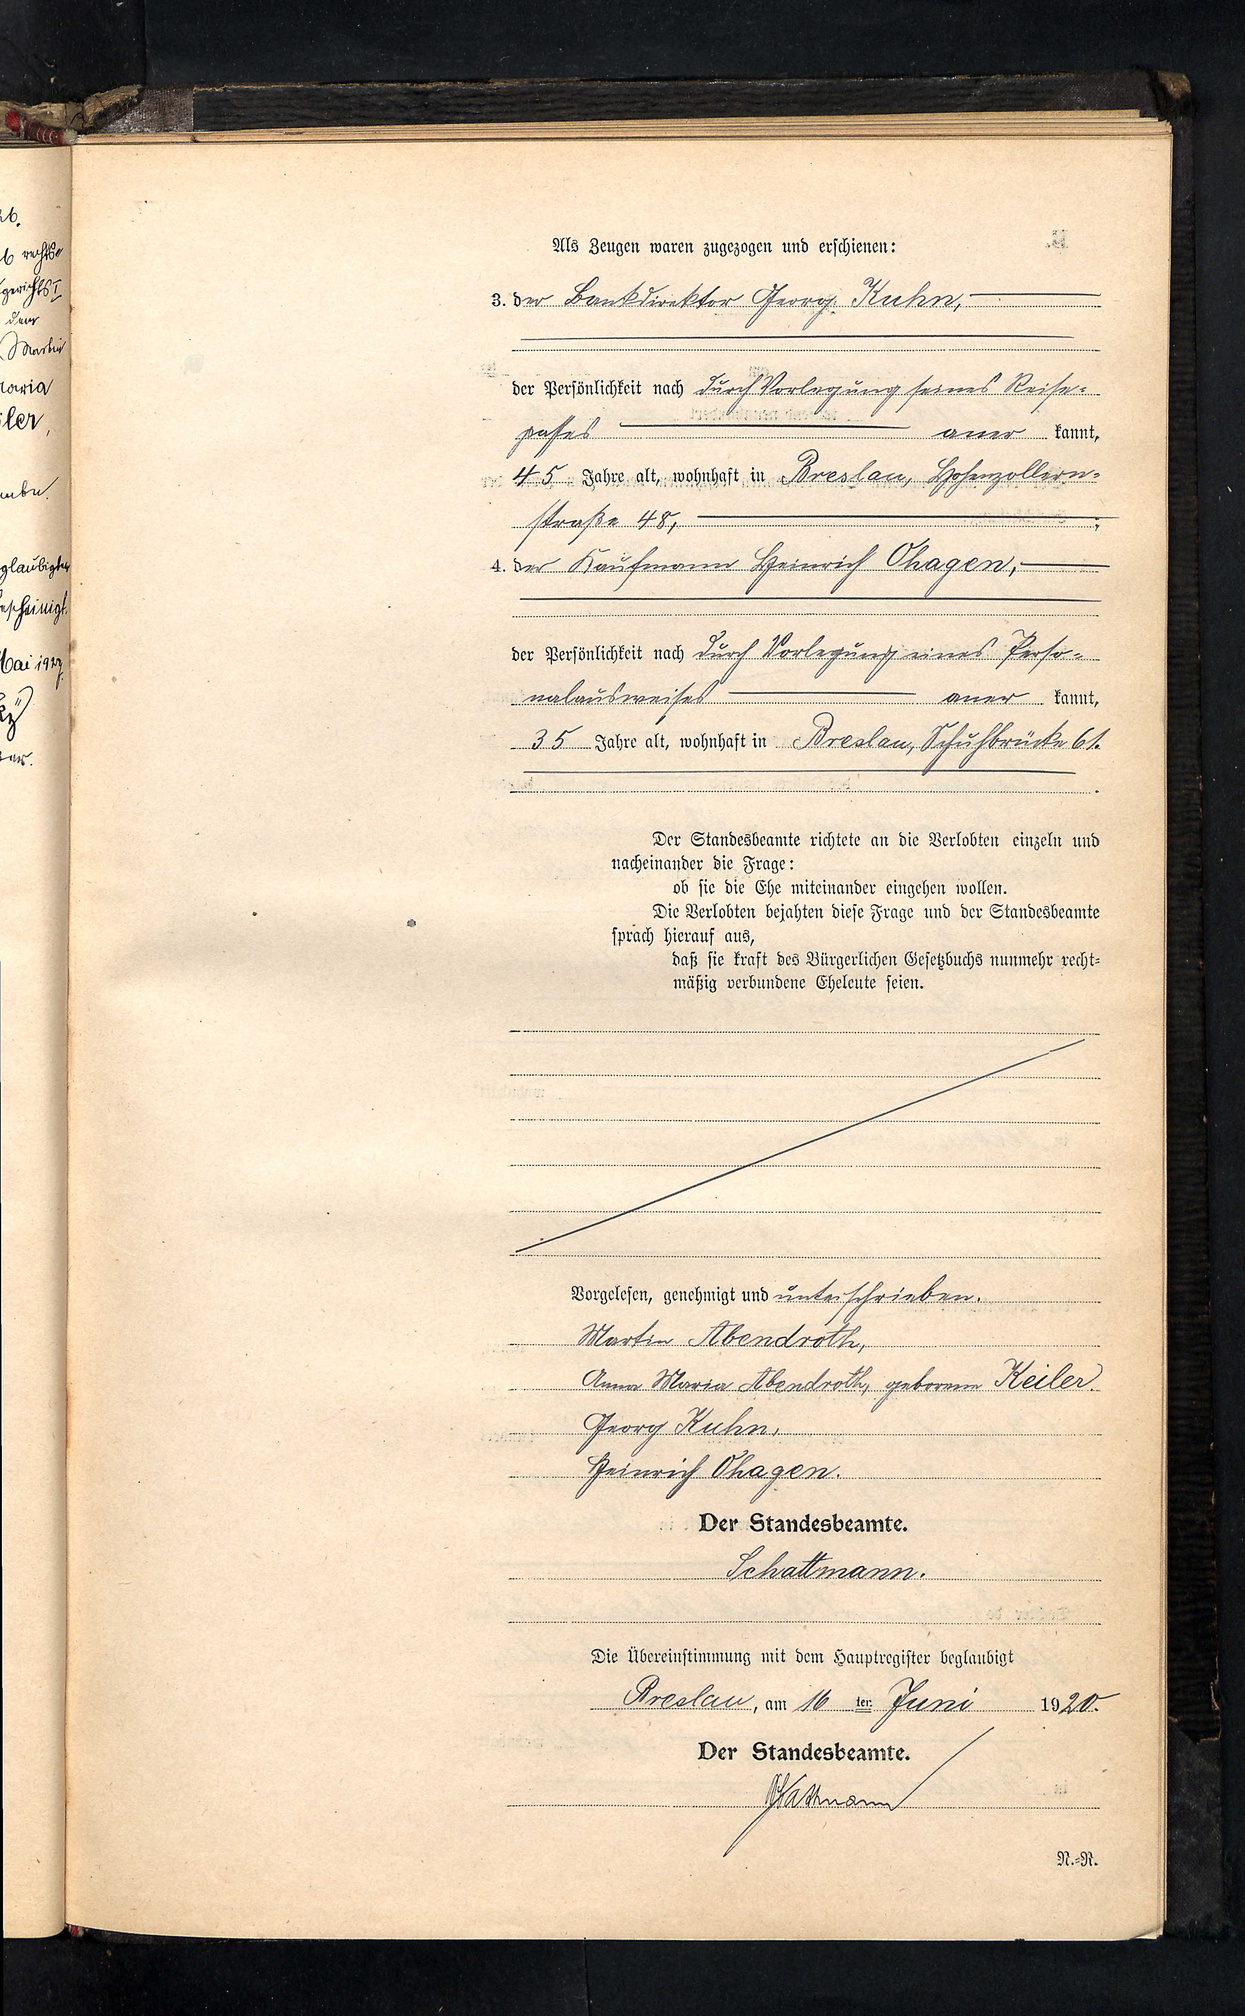 Als Zeugen waren zugezogen und erschienen:
3. der Bankdirektor Georg Kuhn,
der Persönlichkeit nach durch Vorlegung seines Reise-
passes aner kannt,
45 Jahre alt, wohnhaft in Breslau, Hohenzollern-
straße 48, ;
4. der Kaufmann Heinrich Ohagen,
der Persönlichkeit nach durch Vorlegung eines Perso-
nalausweises aner kannt,
35 Jahre alt, wohnhaft in Breslau, Schuhbrücke 61.
Der Standesbeamte richtete an die Verlobten einzeln und
nacheinander die Frage:
ob sie die Ehe miteinander eingehen wollen.
Die Verlobten bejahten diese Frage und der Standesbeamte
sprach hierauf aus,
daß sie kraft des Bürgerlichen Gesetzbuchs nunmehr recht-
mäßig verbundene Eheleute seien.
Vorgelesen, genehmigt und unterschrieben.
Martin Abendroth,
Anna Maria Abendroth, geborene Keiler.
Georg Kuhn,
Heinrich Ohagen.
Der Standesbeamte.
Schattmann.
Die Übereinstimmung mit dem Hauptregister beglaubigt
Breslau, am 16 ten Juni 1920.
Der Standesbeamte.
Schattmann
N.-R.